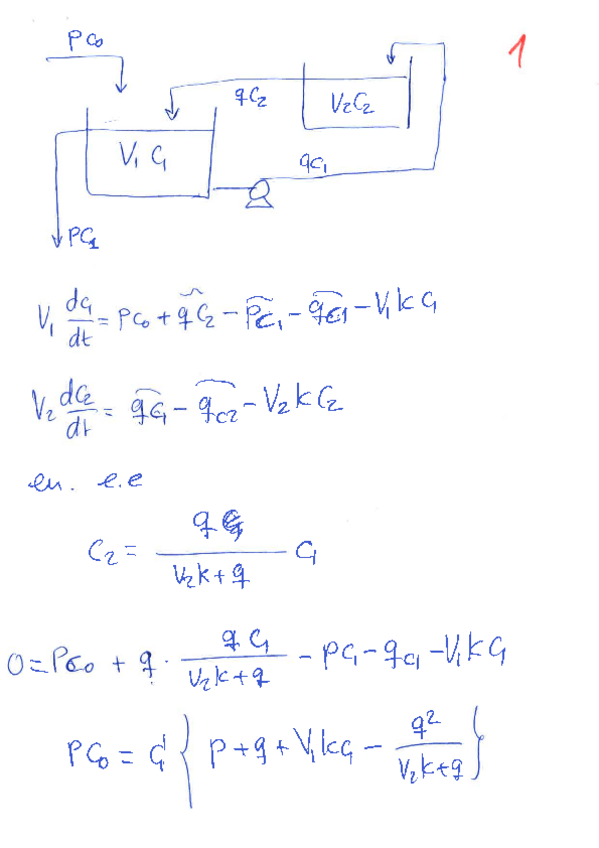 PC₀
1
qC₂
V₂C₂
V₁ C₁
qC₁
PC₁
V₁ dC₁/dt = PC₀ + qC₂ - PC₁ - qC₁ - V₁kC₁
V₂ dC₂/dt = qC₁ - qC₂ - V₂kC₂
en. e.e
C₂ = q/(V₂k+q) C₁
0 = PC₀ + q · qC₁/(V₂k+q) - PC₁ - qC₁ - V₁kC₁
PC₀ = C₁ { P + q + V₁kC₁ - q²/(V₂k+q) }